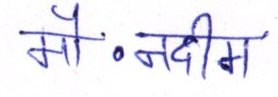 मौ॰ नदीम